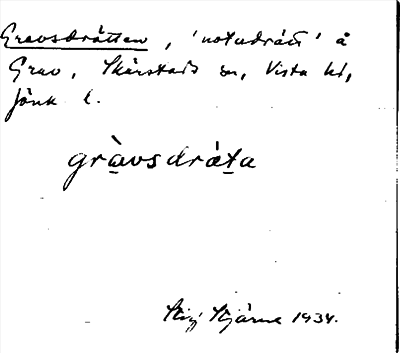 Gravsdråtten, 'notadrätt' å
Grav, Skärstads sn, Vista hd,
Jönk l.
gràvsdráta
Stig Stjärne 1934.